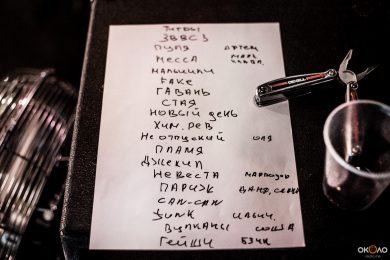 ТИТРЫ
ЗВВСЗ
ПУЛЯ АРТЕМ
МЕССА МАРК
МАЛЬЧИКИ
FAKE
ГАВАНЬ
СТАЯ
НОВЫЙ ДЕНЬ
ХИМ. РЕВ
НЕ ОТПУСКАЙ ОЛЯ
ПЛАМЯ
ДЖЕКИЛ
НЕВЕСТА
ПАРИЖ ДАНЯ,
CAN-CAN
ЦИНК
ВУЛКАНЫ
ГЕЙШИ БЭЧК
ОКОЛО